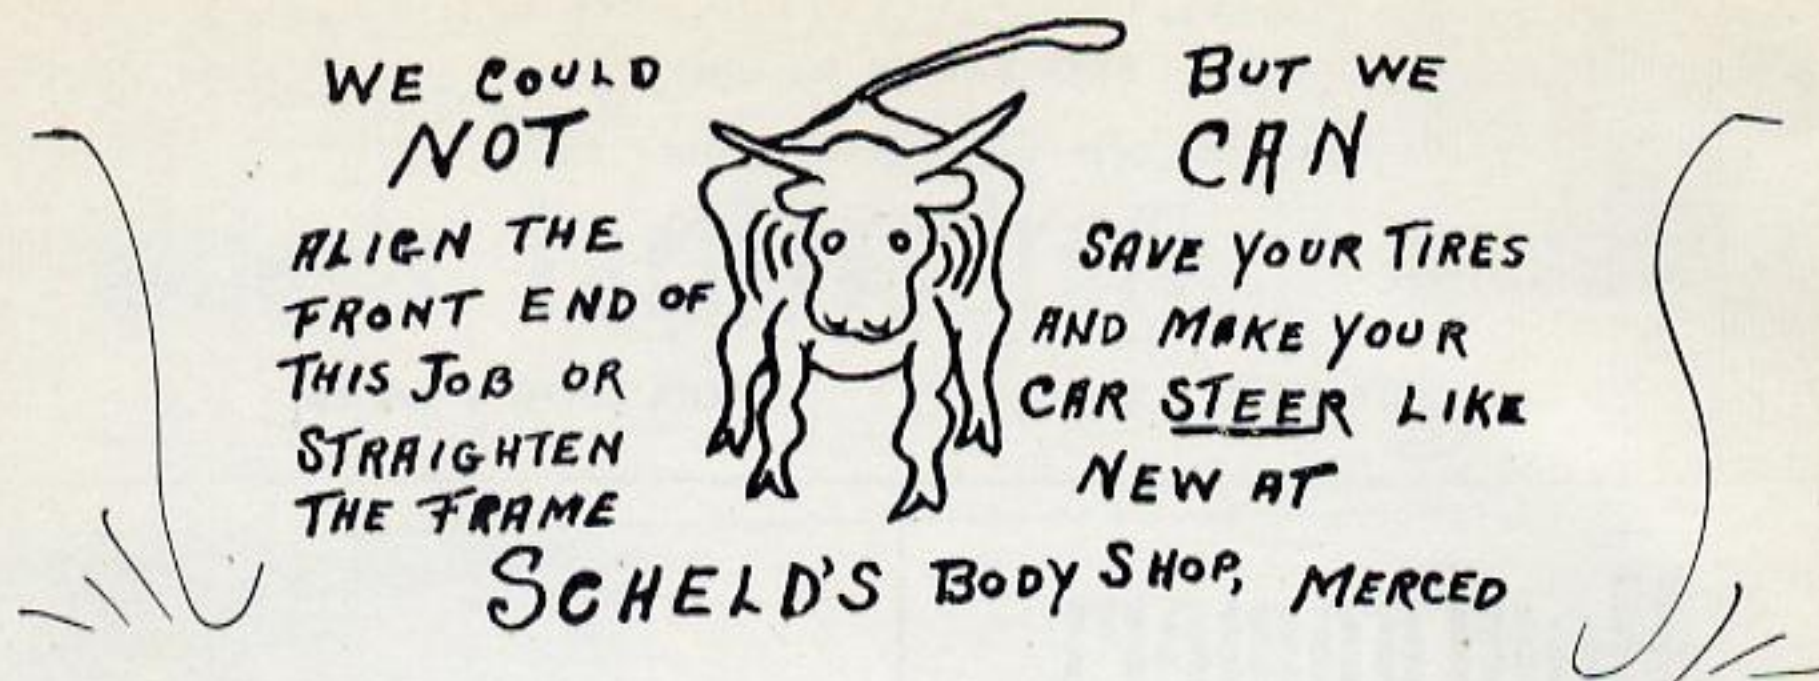 WE COULD
NOT
ALIGN THE
FRONT END OF
THIS JOB OR
STRAIGHTEN
THE FRAME
BUT WE
CAN
SAVE YOUR TIRES
AND MAKE YOUR
CAR STEER LIKE
NEW AT
SCHELD'S BODY SHOP, MERCED